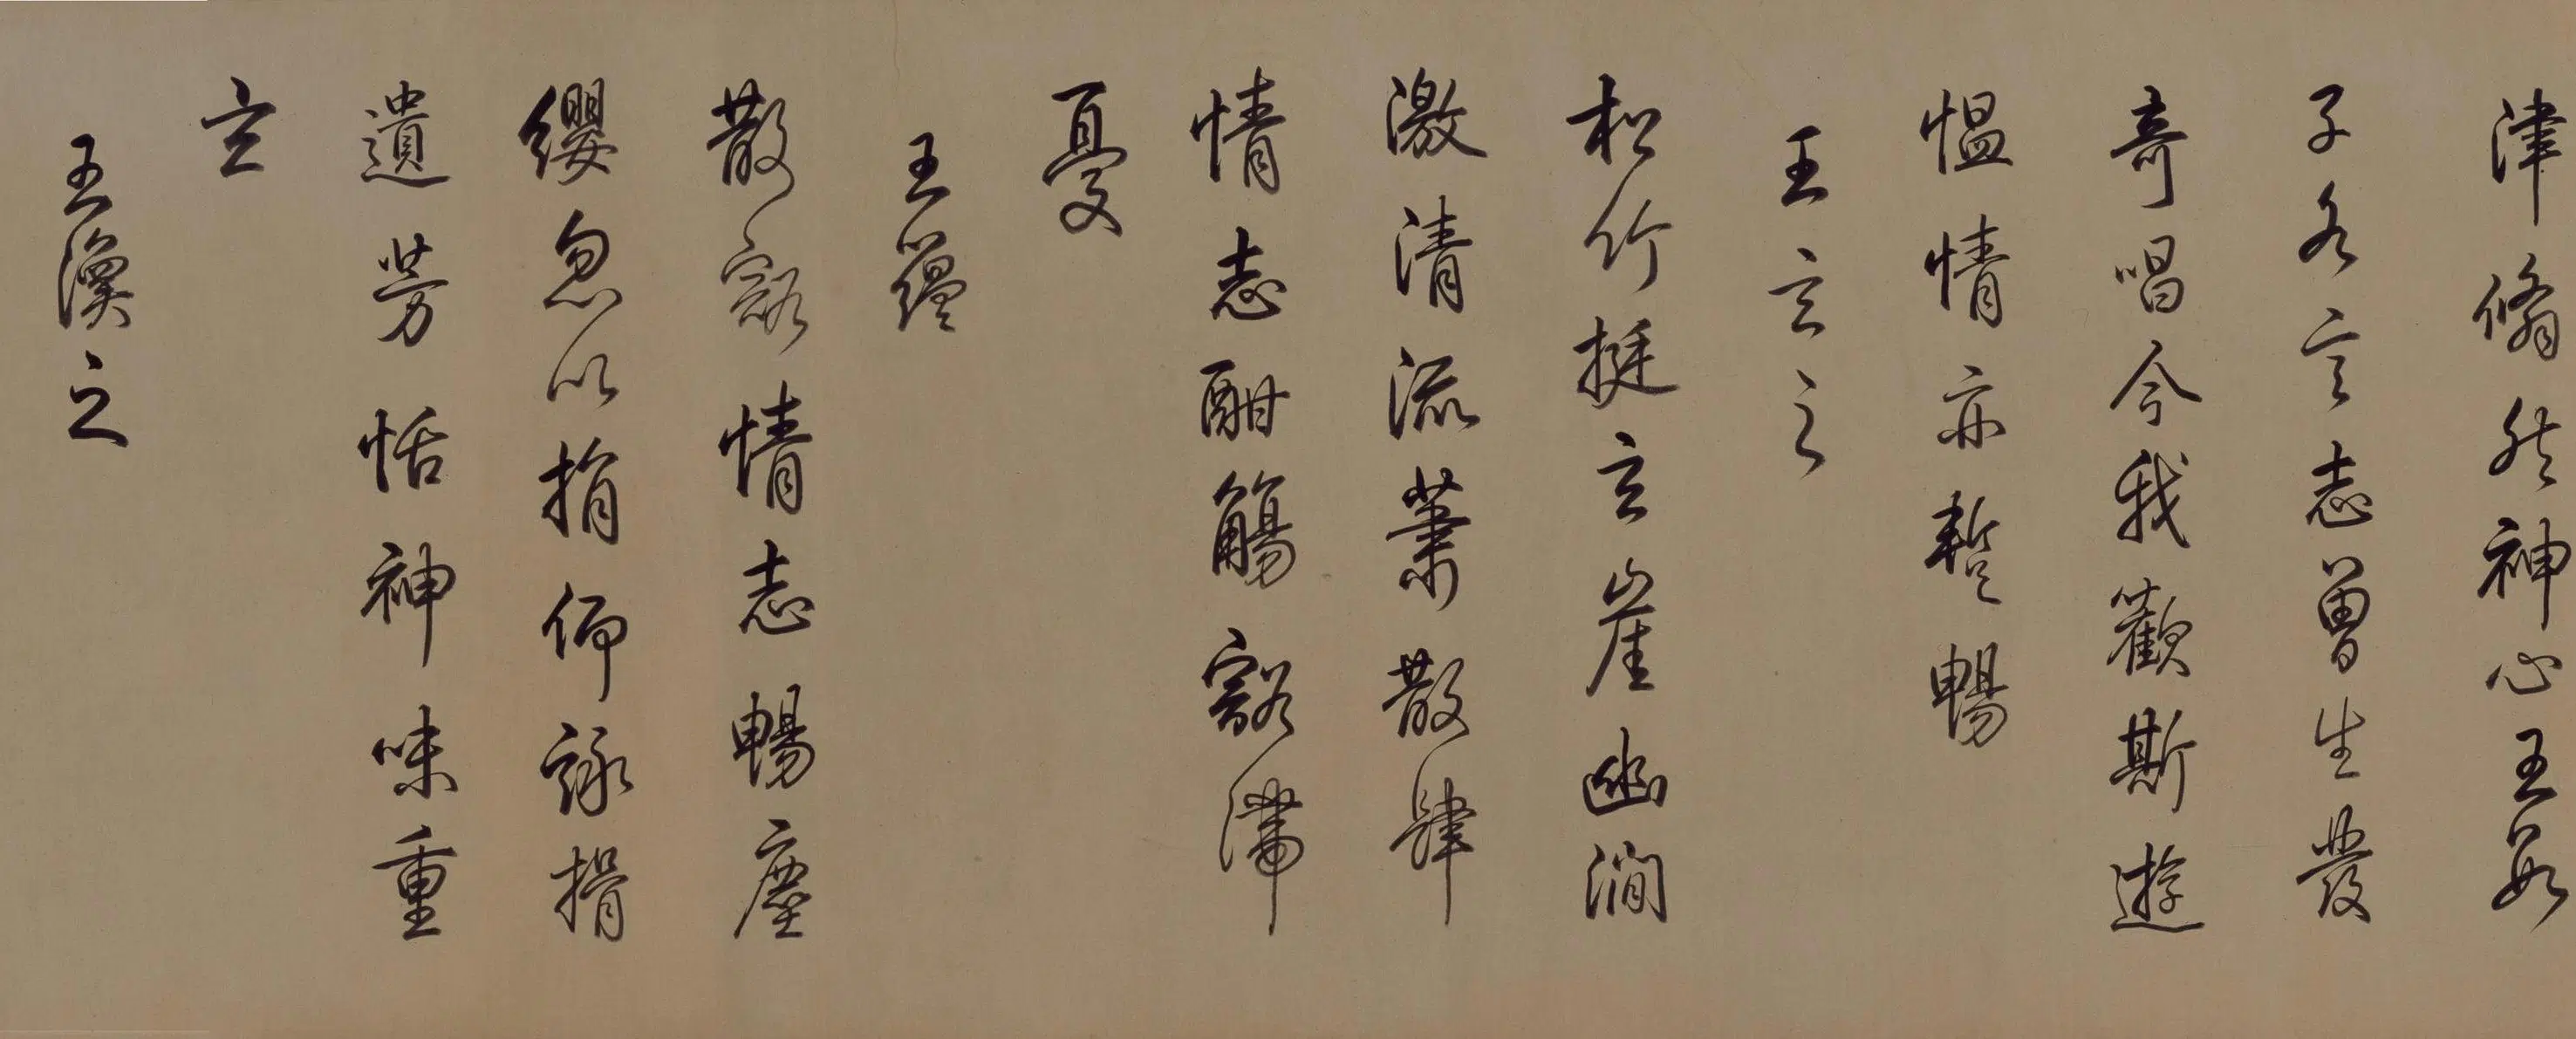 津翛然神心王若
子各言志曾生發
奇唱今我歡斯遊
愠情亦暫暢
王玄之
松竹挺玄崖幽澗
激清流蕭散肆
情志酣觴豁滯
憂
王蘊
散豁情志暢塵
纓忽以捐仰詠揖
遺芳恬神味重
玄
王渙之